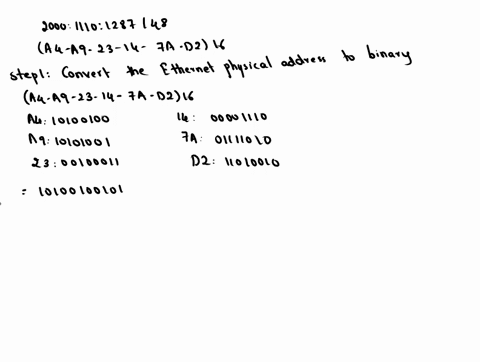 2000:1110:1287/48
(A4-A9-23-14-7A-D2)16
Step1: Convert the Ethernet physical address to binary
(A4-A9-23-14-7A-D2)16
A4: 10100100 14: 00001110
A9: 10101001 7A: 01111010
23: 00100011 D2: 11010010
= 10100100101